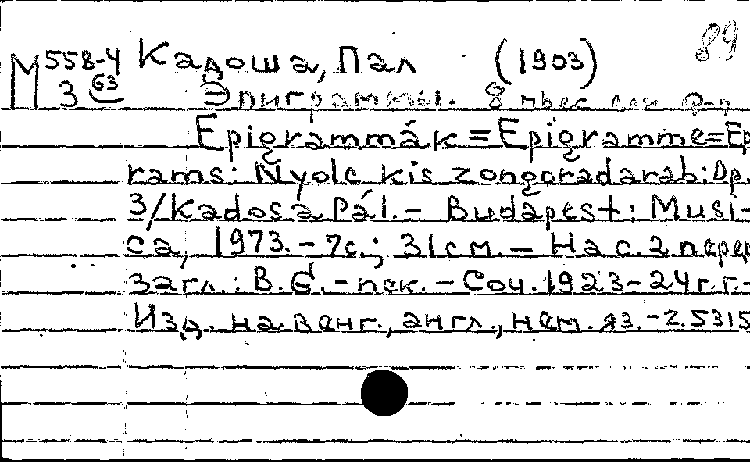 89
М 558-4 Кадоша, Пал (1903)
3 63 Эпиграммы. 8 пьес для ф-п
Epigrammák = Epigramme = Ep
rams: Nyolc kis zongoradarab: Op.
3/Kadosa Pál. - Budapest: Musi-
ca, 1973. - 7с.; 31см. - На с. 2 перер
загл.: В.G. - пек. - Соч. 1923-24 г.г. -
Изд. на венг., англ., нем. яз. - Z.5315